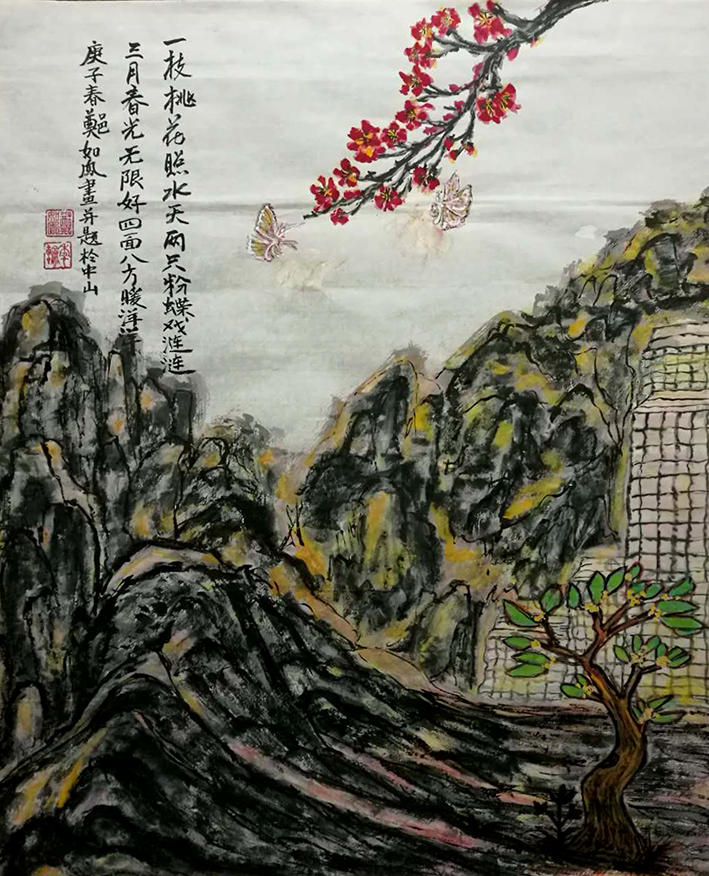 一枝桃花照水天两只粉蝶戏涟涟
三月春光无限好四面八方暖洋洋
庚子春鄭如凤畫并题於中山